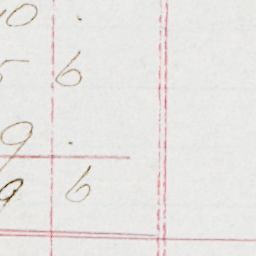 10 .
5 6
9 .
9 6